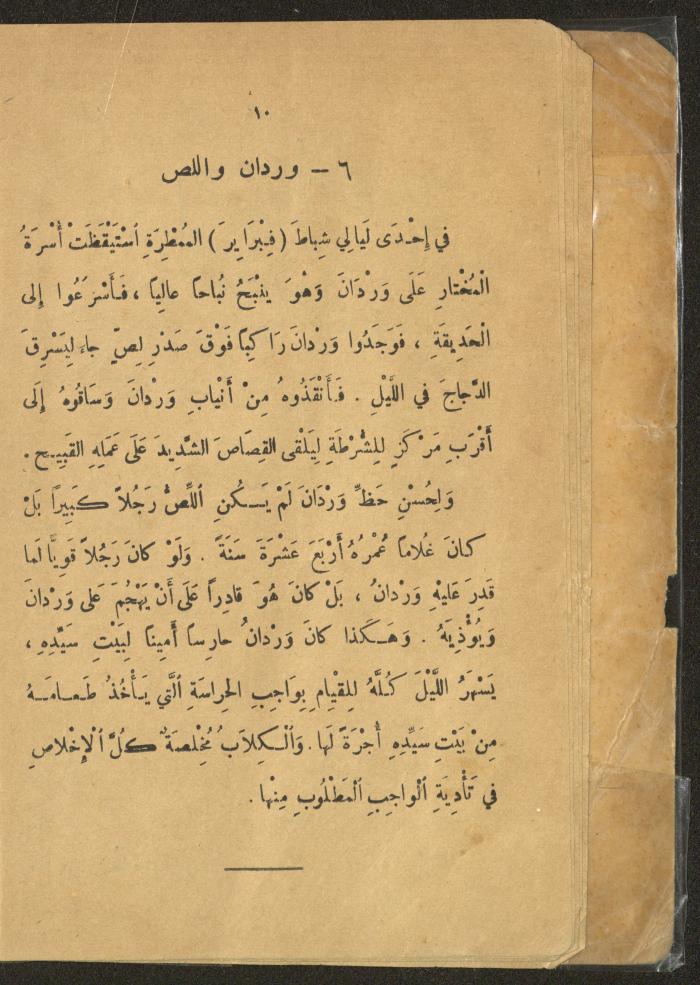 ١٠
٦ – وردان واللص
في إِحْدَى لَيالِي شِباطَ (فِبْرَايرَ) المُمْطِرَةِ ٱسْتَيْقَظَتْ أُسْرَةُ
الْمُخْتارِ عَلَى وَرْدَانَ وَهْوَ يَنْبَحُ نُباحًا عالِيًا ، فَأَسْرَعُوا إِلى
الْحَدِيقَةِ ، فَوَجَدُوا وَرْدَانَ رَاكِبًا فَوْقَ صَدْرِ لِصٍّ جاءَ لِيَسْرِقَ
الدَّجاجَ في اللَّيْلِ . فَأَنْقَذُوهُ مِنْ أَنْيابِ وَرْدَانَ وَساقُوهُ إِلَى
أَقْرَبِ مَرْكَزٍ لِلشُّرْطَةِ لِيَلْقى القِصَاصَ الشَّدِيدَ عَلَى عَمَلِهِ القَبِيحِ .
وَلِحُسْنِ حَظِّ وَرْدَانَ لَمْ يَكُنِ ٱللِّصُّ رَجُلاً كَبِيرًا بَلْ
كانَ غُلامًا عُمْرُهُ أَرْبَعَ عَشْرَةَ سَنَةً . وَلَوْ كانَ رَجُلاً قَوِيًّا لَما
قَدِرَ عَلَيْهِ وَرْدانُ ، بَلْ كانَ هُوَ قادِرًا عَلَى أَنْ يَهْجُمَ عَلى وَرْدانَ
وَيُؤْذِيَهُ . وَهَكَذا كانَ وَرْدانُ حارِسًا أَمِينًا لِبَيْتِ سَيِّدِهِ ،
يَسْهَرُ اللَّيْلَ كُلَّهُ لِلقِيامِ بِوَاجِبِ الحِراسَةِ ٱلَّتي يَأْخُذُ طَعامَهُ
مِنْ بَيْتِ سَيِّدِهِ أُجْرَةً لَها . وَٱلْكِلابُ مُخْلِصَةٌ كُلَّ ٱلْإِخْلاصِ
في تَأْدِيَةِ ٱلْواجِبِ ٱلْمَطْلُوبِ مِنْها .